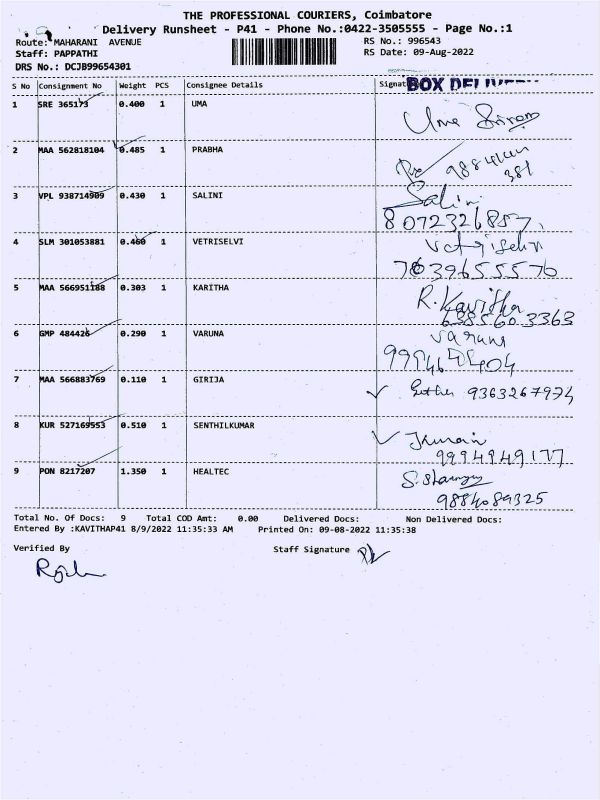 THE PROFESSIONAL COURIERS, Coimbatore
Delivery Runsheet - P41 - Phone No.:0422-3505555 - Page No.:1
Route: MAHARANI AVENUE RS No.: 996543
Staff: PAPPATHI RS Date: 09-Aug-2022
DRS No.: DCJB99654301
S No Consignment No Weight PCS Consignee Details BOX
1 SRE 365173 0.400 1 UMA
Uma Sriram
2 MAA 562818104 0.485 1 PRABHA
381
3 VPL 938714909 0.430 1 SALINI Salini
8072326857
4 SLM 301053881 0.460 1 VETRISELVI Vetriselvi
7639655576
5 MAA 566951188 0.303 1 KARITHA R. Kavitha
6385603363
6 GMP 484426 0.290 1 VARUNA Varuna
7 MAA 566883769 0.110 1 GIRIJA
8 KUR 527169553 0.510 1 SENTHILKUMAR
9994949177
9 PON 8217207 1.350 1 HEALTEC
9884089325
Total No. Of Docs: 9 Total COD Amt: 0.00 Delivered Docs: Non Delivered Docs:
Entered By :KAVITHAP41 8/9/2022 11:35:33 AM Printed On: 09-08-2022 11:35:38
Verified By Staff Signature